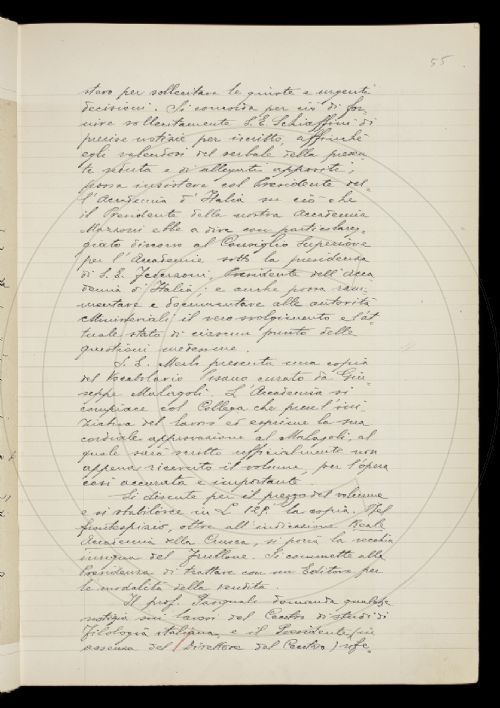 55
stero per sollecitare le giuste e urgenti
decisioni. Si concorda per ciò di for-
nire sollecitamente S. E. Schiaffini di
precise notizie per iscritto, affinché
egli valendosi del verbale della presen-
te seduta e di allegati appositi,
possa insistere col Presidente del-
l'Accademia d'Italia su ciò che
il Presidente della nostra Accademia
Mazzoni ebbe a dire con particolareg-
giato discorso al Consiglio Superiore
per l'Accademie sotto la presidenza
di S. E. Federzoni, Presidente dell'Acca
demia d'Italia; e anche possa ram-
mentare e documentare alle autorità
Ministeriali il vero svolgimento e l'at-
tuale stato di ciascun punto delle
questioni medesime.
S. E. Merlo presenta una copia
del Vocabolario Pisano curato da Giu-
seppe Malagoli. L'Accademia si
compiace col Collega che prese l'ini-
ziativa del lavoro ed esprime la sua
cordiale approvazione al Malagoli, al
quale sarà scritto ufficialmente non
appena ricevuto il volume, per l'opera
così accurata e importante.
Si discute per il prezzo del volume
e si stabilisce in L. la copia. Nel
frontespizio, oltre all'indicazione Reale
Accademia della Crusca, si porrà la vecchia
insegna del Frullone. Si commette alla
Presidenza di trattare con un Editore per
le modalità della vendita.
Il prof. Pasquali domanda qualche
notizia sui lavori del Centro di studi di
filologia italiana e il Presidente (in
assenza del Direttore del Centro) rife-